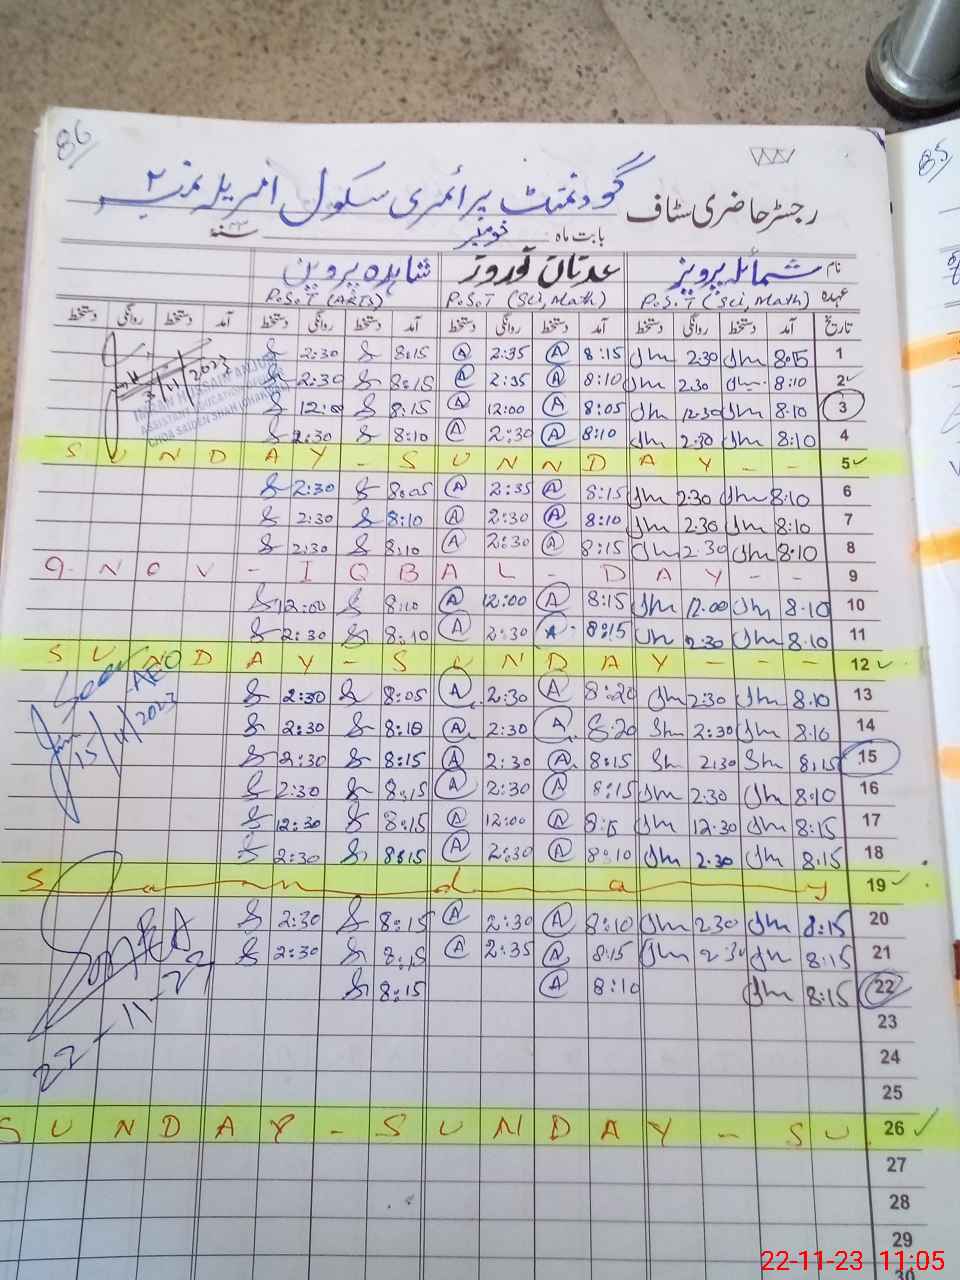 86
85
رجسٹر حاضری سٹاف گورنمنٹ پرائمری سکول امریلہ نمبر ۲
بابت ماہ نومبر ۲۳ سنہ
نام شمائلہ پرویز عدنان نوروز شاہدہ پروین
عہدہ P.S.T (Sci, Math) P.S.T (Sci, Math) P.S.T (ARTS)
تاریخ آمد دستخط روانگی دستخط آمد دستخط روانگی دستخط آمد دستخط روانگی دستخط آمد دستخط روانگی دستخط
1 8:15 Jm 2:30 Jm 8:15 A 2:35 A 8:15 2:30
2 8:10 Jm 2:30 Jm 8:10 A 2:35 A 8:15 2:30
3 8:10 Jm 12:30 Jm 8:05 A 12:00 A 8:15 12:00
4 8:10 Jm 2:30 Jm 8:10 A 2:30 A 8:10 2:30
SUNDAY - SUNNDAY - - 5
6 8:10 Jm 2:30 Jm 8:15 A 2:35 A 8:05 2:30
7 8:10 Jm 2:30 Jm 8:10 A 2:30 A 8:10 2:30
8 8:10 Jm 2:30 Jm 8:15 A 2:30 A 8:10 2:30
9-NOV - IQBAL - DAY - - 9
10 8:10 Jm 12:00 Jm 8:15 A 12:00 A 8:10 12:00
11 8:10 Jm 2:30 Jm 8:15 A 2:30 A 8:10 2:30
SUNDAY - SUNDAY - - - 12
13 8:10 Jm 2:30 Jm 8:20 A 2:30 A 8:05 2:30
14 8:10 Jm 2:30 Sm 8:20 A 2:30 A 8:10 2:30
15 8:15 Sm 2:30 Sm 8:15 A 2:30 A 8:15 2:30
16 8:10 Jm 2:30 Jm 8:15 A 2:30 A 8:15 2:30
17 8:15 Jm 12:30 Jm 8:15 A 12:00 A 8:15 12:30
18 8:15 Jm 2:30 Jm 8:10 A 2:30 A 8:15 2:30
Sunday 19
20 8:15 Jm 2:30 Jm 8:10 A 2:30 A 8:15 2:30
21 8:15 Jm 2:30 Jm 8:15 A 2:35 A 8:15 2:30
22 8:15 Jm 8:10 A 8:15
23
24
25
SUNDAY - SUNDAY - SU 26
27
28
29
30
ASSISTANT EDUCATION
CHOA SAIDEN SHAH (CHAKWAL)
Seen
AEO
15/11/2023
22-11-23
22-11-23 11:05